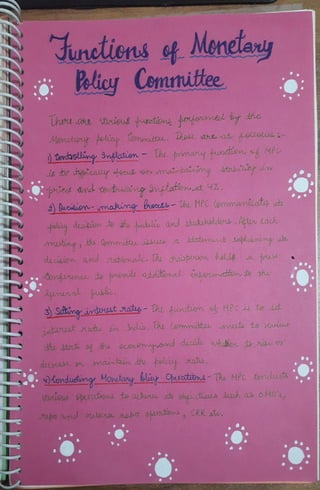 Functions of Monetary
Policy Committee
There are various functions performed by the
Monetary Policy Committee. These are as follows :-
1) Controlling Inflation - The primary function of MPC
is to typically focus on maintaining stability in
prices and controlling inflation at 4%.
2) Decision-making Process - The MPC communicates its
policy decision to the public and stakeholders. After each
meeting, the committee issues a statement explaining its
decision and rationale. The chairperson holds a press
conference to provide additional information to the
general public.
3) Setting interest rates - The function of MPC is to set
interest rates in India. The committee meets to review
the state of the economy and decide whether to rise or
decrease or maintain the policy rates.
4) Conducting Monetary Policy Operations - The MPC conducts
various operations to achieve its objectives such as OMO's,
repo and reverse repo operations, CRR etc.